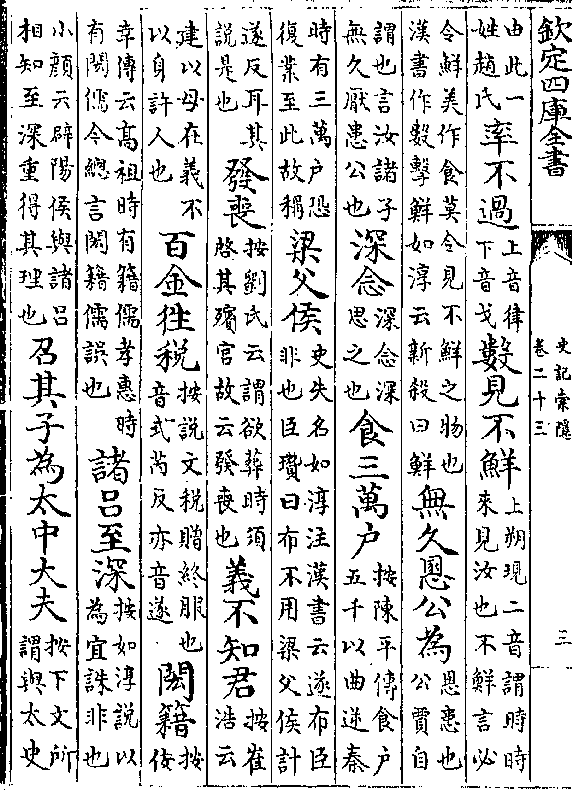 欽定四庫全書
史記索隱
卷二十三
三
由此一姓趙氏率不過上音律下音戈數見不鮮上朔現二音謂時時來見汝也不鮮言必
令鮮美作食莫令見不鮮之物也漢書作數擊鮮如淳云新殺曰鮮無久慁公為慁患也公賈自
謂也言汝諸子無久厭患公也深念深念深思之也食三萬户按陳平傳食户五千以曲逆秦
時有三萬户恐復業至此故稱梁父侯史失名如淳注漢書云遂布臣非也臣瓚曰布不用梁父侯計
遂反耳其說是也發喪按劉氏云謂欲葬時須啓其殯宫故云發喪也義不知君按崔浩云
建以母在義不以身許人也百金往税按說文税贈終服也音式芮反亦音遂閎籍按佞
幸傳云高祖時有籍儒孝惠時有閎儒今總言閎籍儒誤也諸吕至深按如淳說以為宜誅非也
小顔云辟陽侯與諸吕相知至深重得其理也召其子為太中大夫按下文所謂與太史